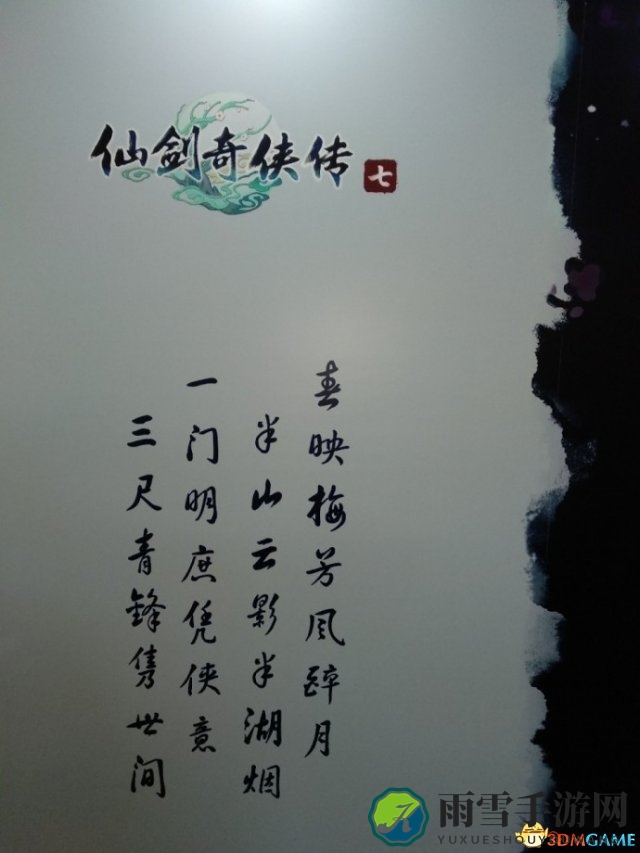 仙剑奇侠传 七
春映梅芳风醉月
半山云影半湖烟
一门明庶凭侠意
三尺青鋒隽世间
雨雪手游网
YUXUESHOUYOUWANG
3DMGAME